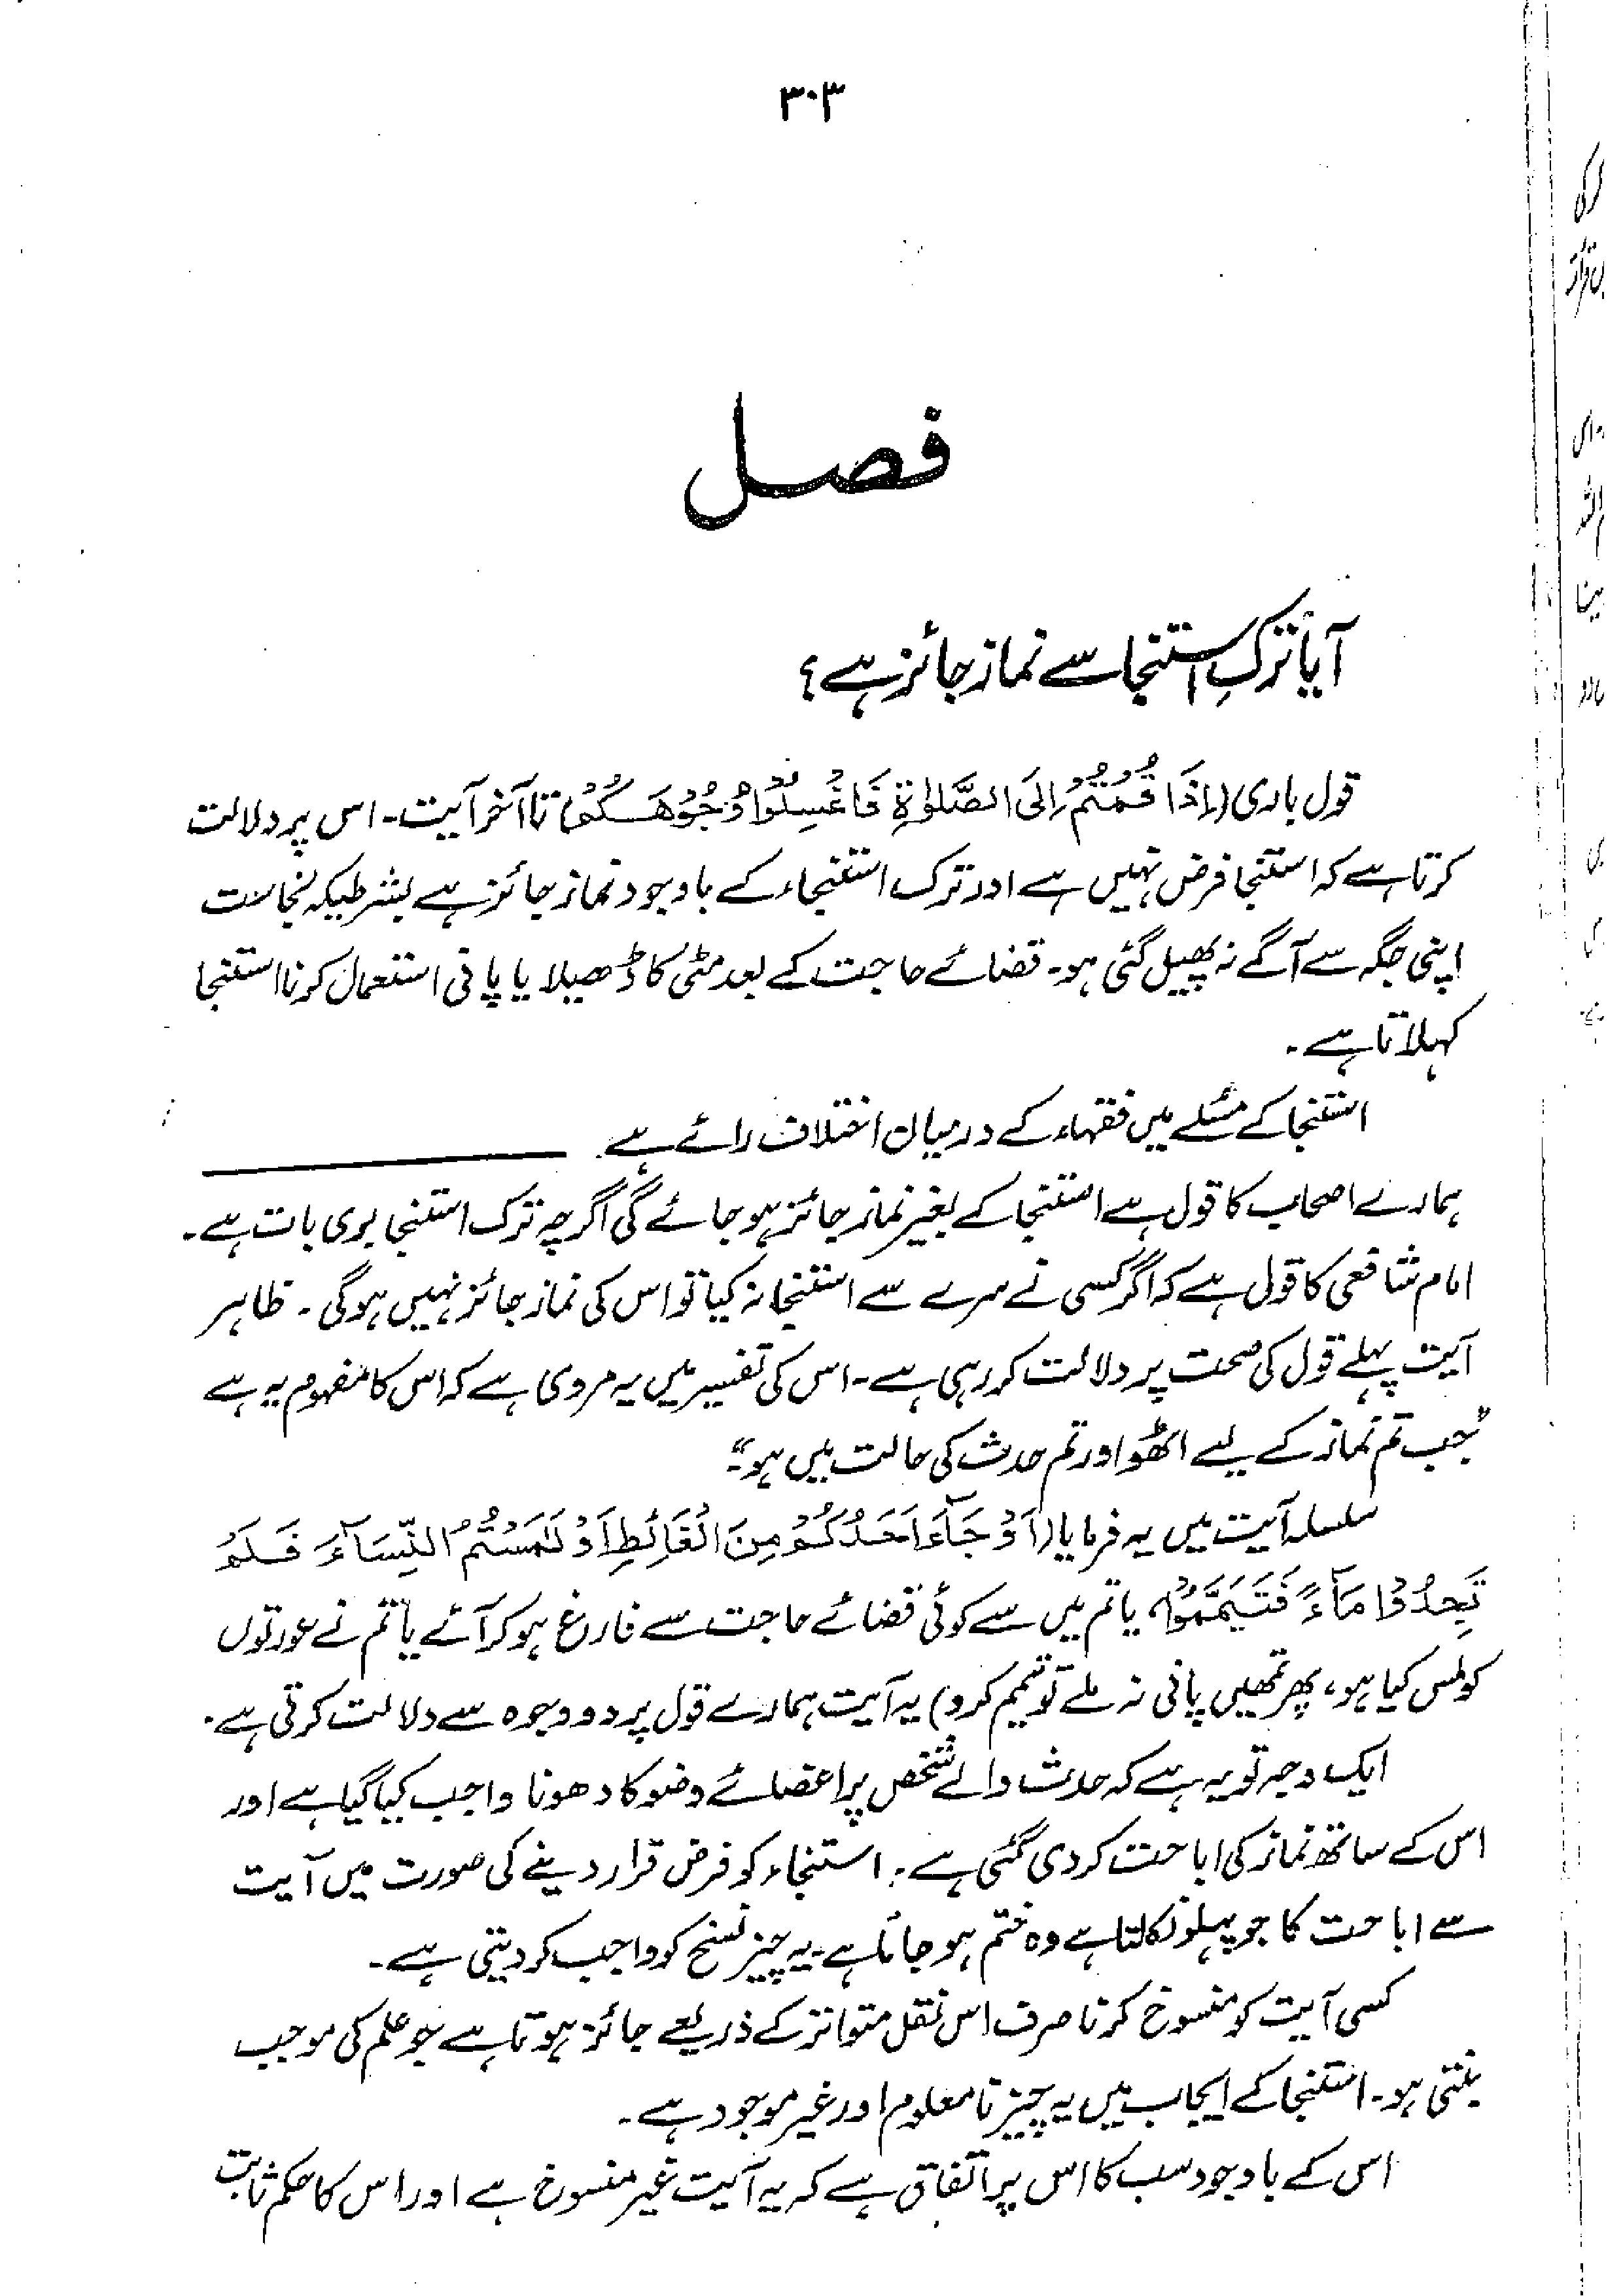 ۳۰۳
فصل
آیا ترکِ استنجا سے نماز جائز ہے؟
قول باری (اِذَا قُمْتُمْ اِلَی الصَّلٰوۃِ فَاغْسِلُوْا وُجُوْهَكُمْ) تا آخر آیت۔ اس پر دلالت
کرتا ہے کہ استنجا فرض نہیں ہے اور ترک استنجاء کے باوجود نماز جائز ہے بشرطیکہ نجاست
اپنی جگہ سے آگے نہ پھیل گئی ہو۔ قضائے حاجت کے بعد مٹی کا ڈھیلا یا پانی استعمال کرنا استنجا
کہلاتا ہے۔
استنجا کے مسئلے میں فقہاء کے درمیان اختلاف رائے ہے
ہمارے اصحاب کا قول ہے استنجا کے بغیر نماز جائز ہو جائے گی اگرچہ ترک استنجا بری بات ہے۔
امام شافعی کا قول ہے کہ اگر کسی نے سرے سے استنجا نہ کیا تو اس کی نماز جائز نہیں ہوگی۔ ظاہر
آیت پہلے قول کی صحت پر دلالت کر رہی ہے۔ اس کی تفسیر میں یہ مروی ہے کہ اس کا مفہوم یہ ہے
”جب تم نماز کے لیے اٹھو اور تم حدث کی حالت میں ہو۔“
سلسلہ آیت میں یہ فرمایا (اَوْ جَآءَ اَحَدٌ مِّنْكُمْ مِنَ الْغَائِطِ اَوْ لٰمَسْتُمُ النِّسَآءَ فَلَمْ
تَجِدُوْا مَآءً فَتَيَمَّمُوْا، یا تم میں سے کوئی قضائے حاجت سے فارغ ہو کر آئے یا تم نے عورتوں
کو لمس کیا ہو، پھر تمھیں پانی نہ ملے تو تیمم کرو) یہ آیت ہمارے قول پر دو وجوہ سے دلالت کرتی ہے۔
ایک وجہ تو یہ ہے کہ حدث والے شخص پر اعضائے وضو کا دھونا واجب کیا گیا ہے اور
اس کے ساتھ نماز کی اباحت کر دی گئی ہے۔ استنجاء کو فرض قرار دینے کی صورت میں آیت
سے اباحت کا جو پہلو نکلتا ہے وہ ختم ہو جاتا ہے۔ یہ چیز نسخ کو واجب کر دیتی ہے۔
کسی آیت کو منسوخ کرنا صرف اس نقل متواتر کے ذریعے جائز ہوتا ہے جو علم کی موجب
بنتی ہو۔ استنجا کے ایجاب میں یہ چیز نا معلوم اور غیر موجود ہے۔
اس کے باوجود سب کا اس پر اتفاق ہے کہ یہ آیت غیر منسوخ ہے اور اس کا حکم ثابت